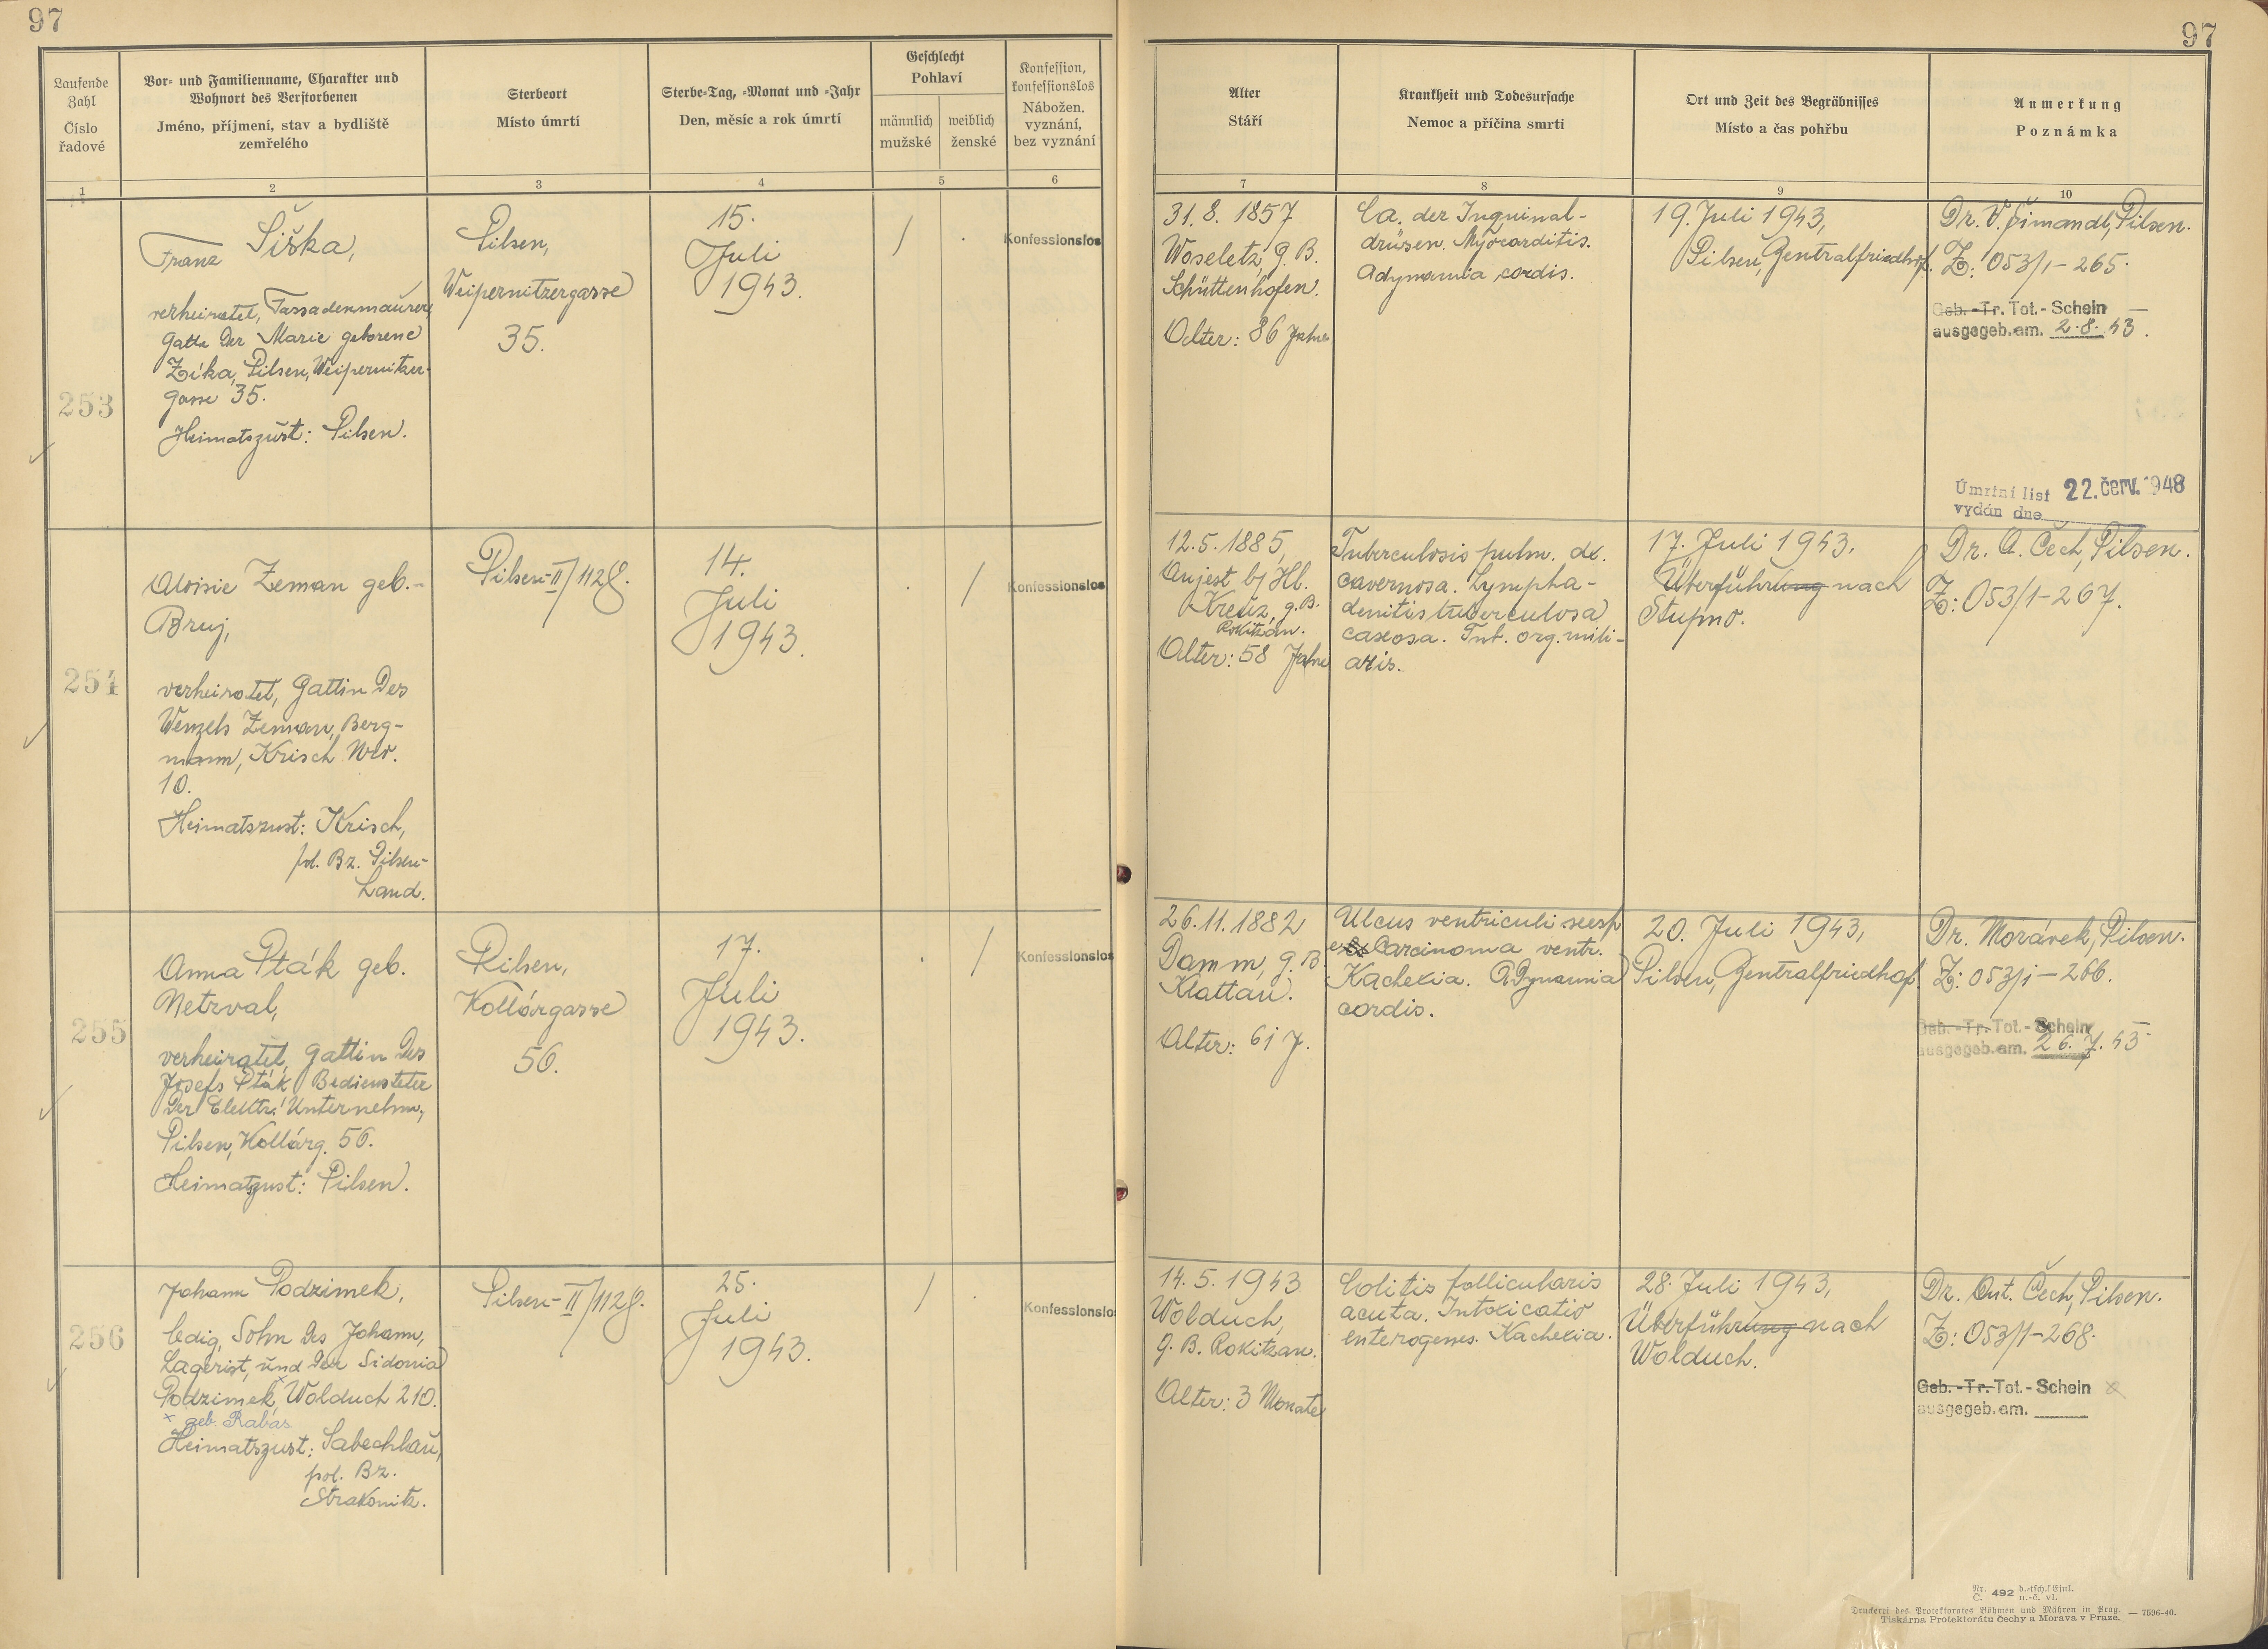 97
97
Laufende Zahl
Číslo řadové
Vor- und Familienname, Charakter und
Wohnort des Verstorbenen
Jméno, příjmení, stav a bydliště
zemřelého
Sterbeort
Místo úmrtí
Sterbe-Tag, -Monat und -Jahr
Den, měsíc a rok úmrtí
Geschlecht
Pohlaví
männlich
mužské
weiblich
ženské
Konfession,
konfessionslos
Nábožen.
vyznání,
bez vyznání
Alter
Stáří
Krankheit und Todesursache
Nemoc a příčina smrti
Ort und Zeit des Begräbnisses
Místo a čas pohřbu
Anmerkung
Poznámka
1
2
3
4
5
6
7
8
9
10
253
Franz Šiška,
verheiratet, Fassadenmaurer,
Gatte der Marie geborene
Zíka, Pilsen, Weipernitzer-
gasse 35.
Heimatszust: Pilsen.
Pilsen,
Weipernitzergasse
35.
15.
Juli
1943.
/
.
Konfessionslos
31.8. 1857
Woseletz, g. B.
Schüttenhofen.
Alter: 86 Jahre
Ca. der Inguinal-
drüsen. Myocarditis.
Adynamia cordis.
19. Juli 1943,
Pilsen, Zentralfriedhof.
Dr. V. Šimandl, Pilsen.
Z: 053/1-265.
Geb. -Tr. Tot.- Schein
ausgegeb.am. 2.8.43.
Úmrtní list 22. červ. 1948
vydán dne
254
Aloisie Zeman geb.-
Bruj,
verheiratet, Gattin des
Wenzels Zeman, Berg-
mann, Krisch Nro.
10.
Heimatszust: Krisch,
pol. Bz. Pilsen-
Land.
Pilsen-II/1128.
14.
Juli
1943.
.
/
Konfessionslos
12.5.1885,
Aujest bj Hl.
Kreuz, g. B.
Rokitzan.
Alter: 58 Jahre
Tuberculosis pulm. dx.
cavernosa. Lympha-
denitis tuberculosa
caseosa. Tub. org. mili-
aris.
17. Juli 1943.
Überführung nach
Stupno.
Dr. A. Čech, Pilsen.
Z: 053/1-267.
255
Anna Pták geb.
Netrval,
verheiratet, Gattin des
Josefs Pták, Bediensteter
der Elektr. Unternehm.,
Pilsen, Kollárg. 56.
Heimatzust: Pilsen.
Pilsen,
Kollárgasse
56.
17.
Juli
1943.
.
/
Konfessionslos
26.11.1882
Damm, g. B.
Klattau.
Alter: 61 J.
Ulcus ventriculi susp.
Carcinoma ventr.
Kachexia. Adynamia
cordis.
20. Juli 1943,
Pilsen, Zentralfriedhof.
Dr. Morávek, Pilsen.
Z: 053/1-266.
Geb. -Tr. Tot.- Schein
ausgegeb.am. 26.7.43
256
Johann Podzimek,
ledig, Sohn des Johann,
Lagerist, und der Sidonia
Podzimek, × Wolduch 210.
× geb. Rabas
Heimatszust: Sabechlau,
pol. Bz.
Strakonitz.
Pilsen-II/1128.
25.
Juli
1943.
/
.
Konfessionslos
14.5.1943
Wolduch,
g. B. Rokitzan.
Alter: 3 Monate
Colitis follicularis
acuta. Intoxicatio
enterogenes. Kachexia.
28. Juli 1943,
Überführung nach
Wolduch.
Dr. Ant. Čech, Pilsen.
Z: 053/1-268.
Geb. -Tr. Tot.- Schein
ausgegeb.am.
Nr. 492 d.-tsch. Einl.
Č. n.-č. vl.
Druckerei des Protektorates Böhmen und Mähren in Prag.
Tiskárna Protektorátu Čechy a Morava v Praze. — 7596-40.